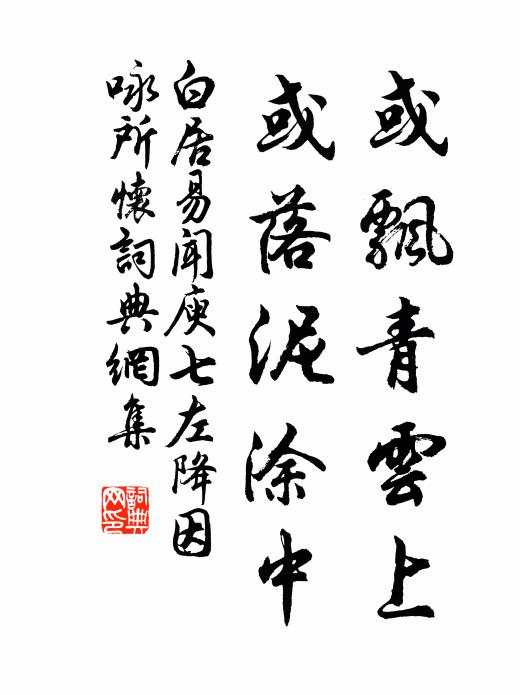 或飄青雲上
或落泥涂中
白居易聞庾七左降因
咏所懷詞典網集
詞典
网印